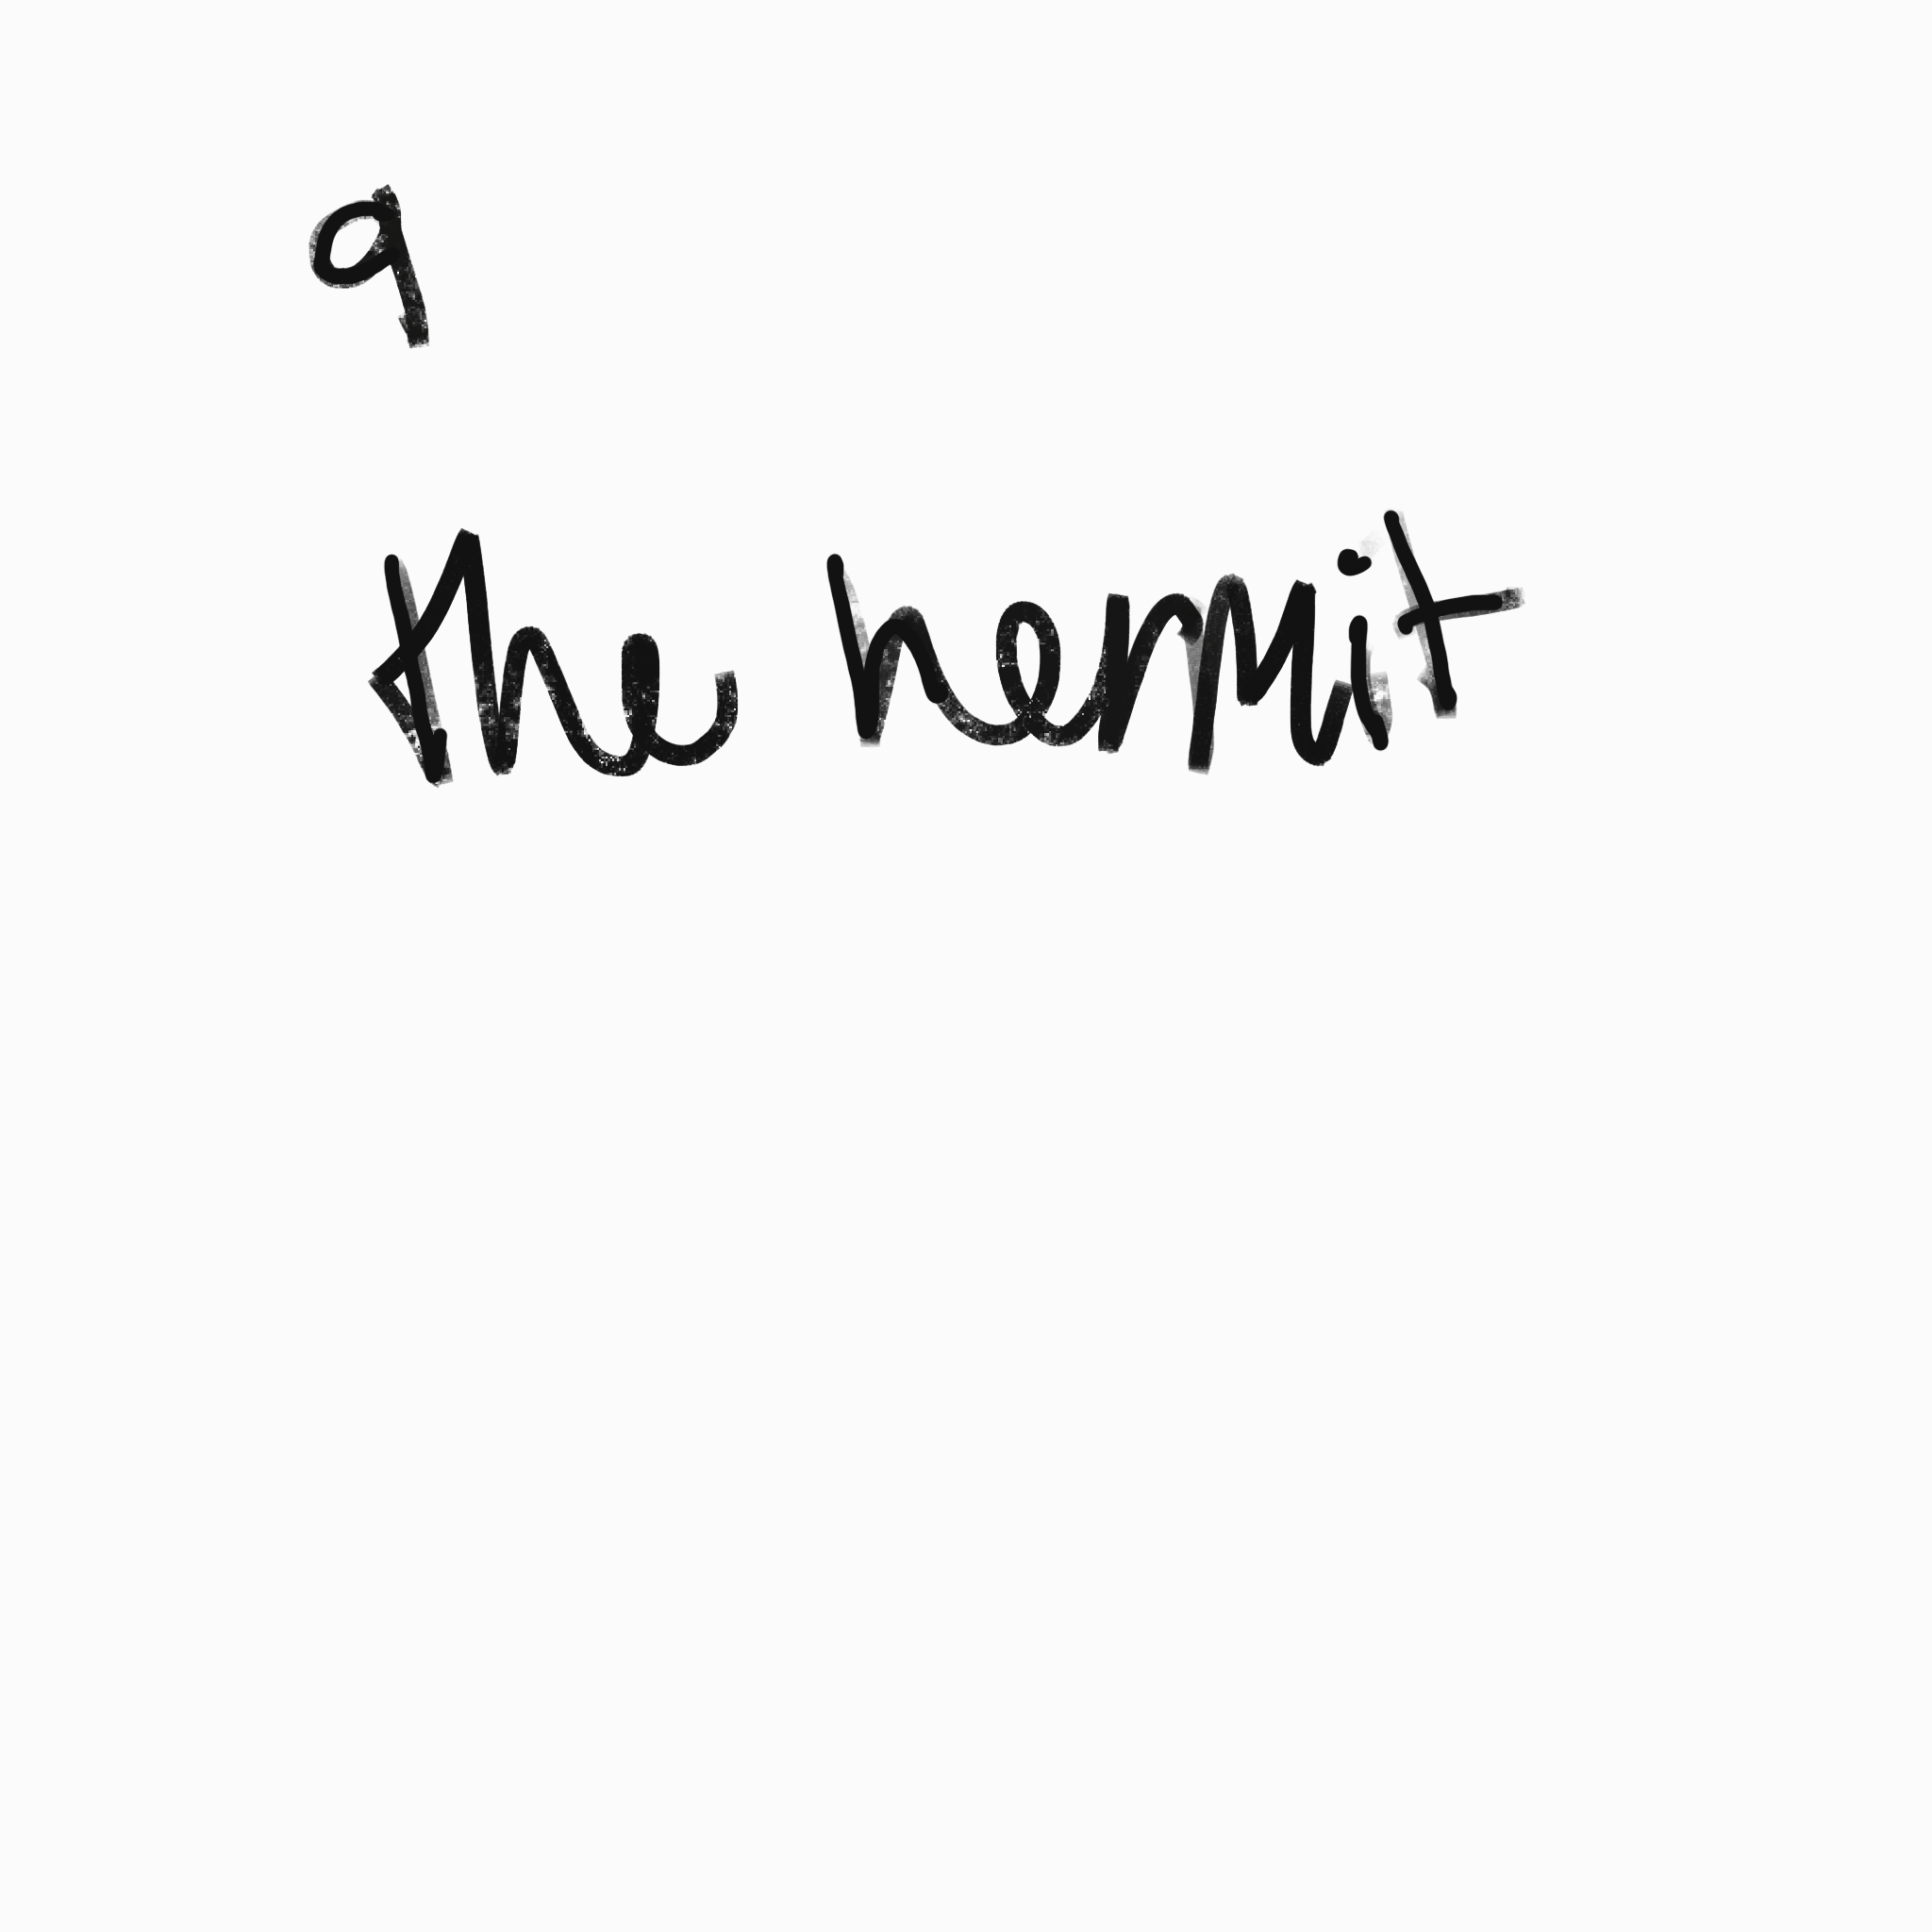 9
the hermit